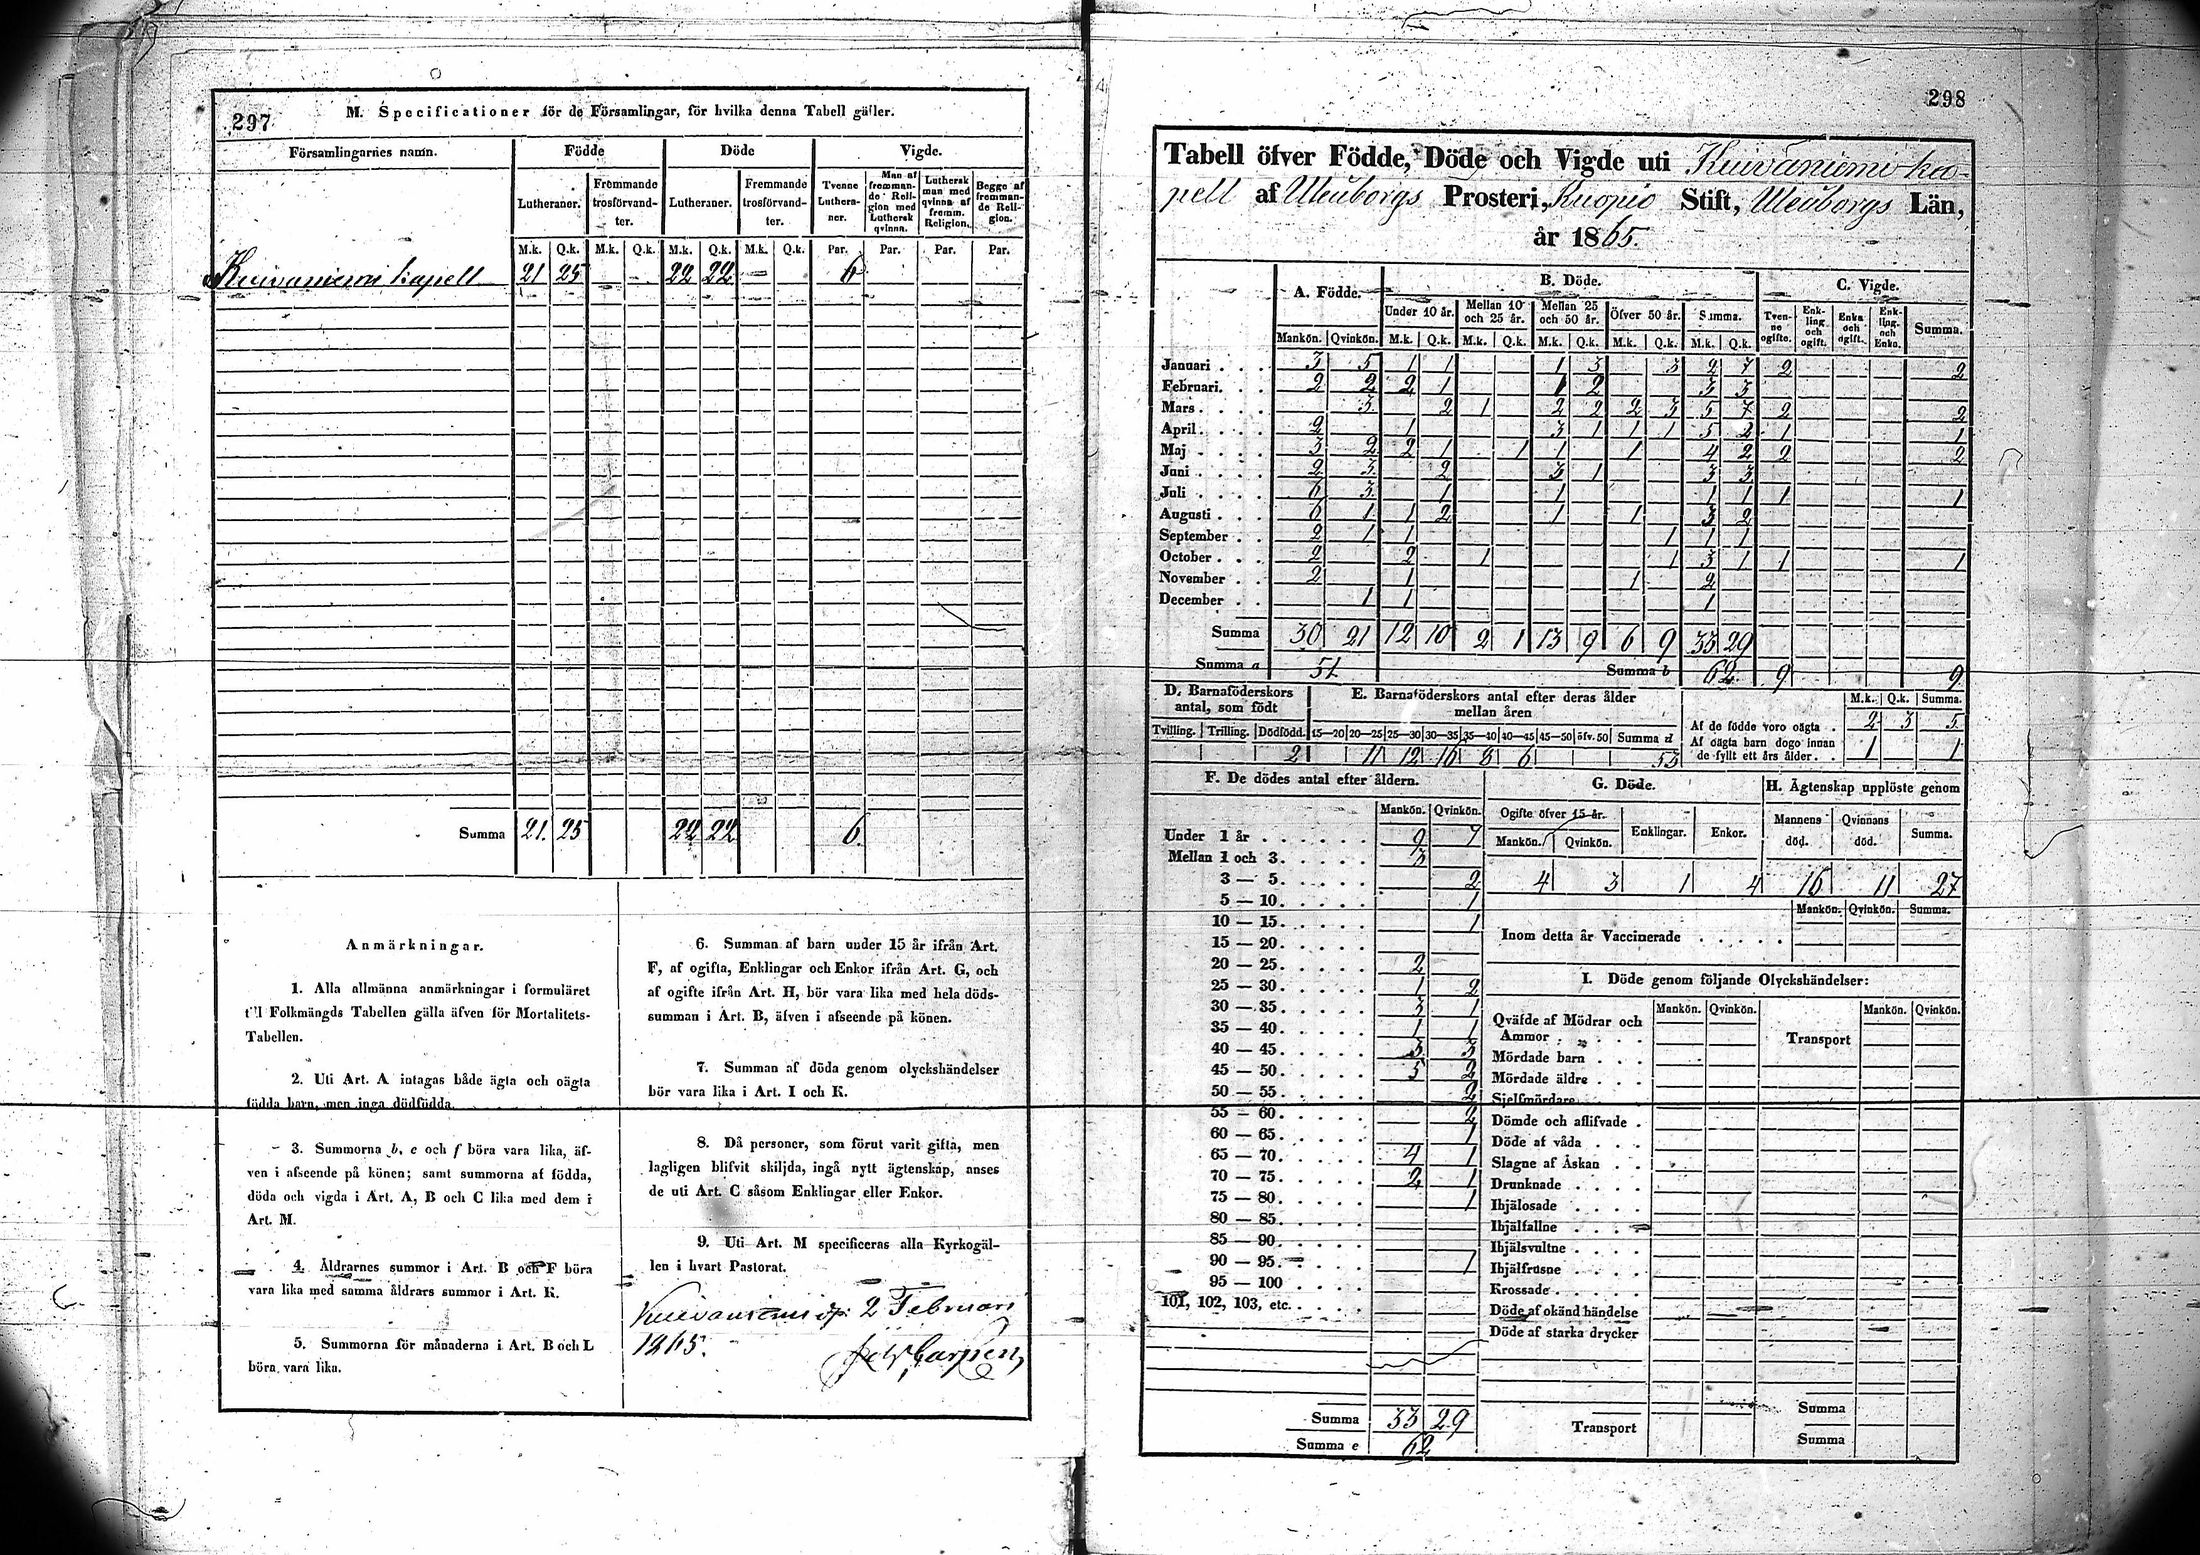 297
M. Specificationer för de Församlingar, för hvilka denna Tabell gäller.
Församlingarnes namn. Födde Döde Vigde.
Lutheraner. Fremmande trosförvandter. Lutheraner. Fremmande trosförvandter. Tvenne Lutheraner. Man af fremmande Religion med Luthersk qvinna. Luthersk man med qvinna af fremm. Religion. Begge af fremmande Religion.
M.k. Q.k. M.k. Q.k. M.k. Q.k. M.k. Q.k. Par. Par. Par. Par.
Kuivaniemi kapell 21 25 — - 22 22 — 6
Summa 21. 25 22 22 6.
Anmärkningar.
1. Alla allmänna anmärkningar i formuläret
till Folkmängds Tabellen gälla äfven för Mortalitets-
Tabellen.
2. Uti Art. A intagas både ägta och oägta
födda barn, men inga dödfödda.
3. Summorna b, e och f böra vara lika, äf-
ven i afseende på könen; samt summorna af födda,
döda och vigda i Art. A, B och C lika med dem i
Art. M.
4. Åldrarnes summor i Art. B och F böra
vara lika med samma åldrars summor i Art. K.
5. Summorna för månaderna i Art. B och L
böra vara lika.
6. Summan af barn under 15 år ifrån Art.
F, af ogifta, Enklingar och Enkor ifrån Art. G, och
af ogifte ifrån Art. H, bör vara lika med hela döds-
summan i Art. B, äfven i afseende på könen.
7. Summan af döda genom olyckshändelser
bör vara lika i Art. I och K.
8. Då personer, som förut varit gifta, men
lagligen blifvit skiljda, ingå nytt ägtenskap, anses
de uti Art. C såsom Enklingar eller Enkor.
9. Uti Art. M specificeras alla Kyrkogäl-
len i hvart Pastorat.
2 Februari
1865.
298
Tabell öfver Födde, Döde och Vigde uti Kuivaniemi ka-
pell af Uleuborgs Prosteri, Kuopio Stift, Uleuborgs Län,
år 1865.
A. Födde. B. Döde. C. Vigde.
Under 10 år. Mellan 10 och 25 år. Mellan 25 och 50 år. Öfver 50 år. Summa. Tvenne ogifte. Enkling och ogift. Enka och ogift. Enkling och Enka. Summa.
Mankön. Qvinkön. M.k. Q.k. M.k. Q.k. M.k. Q.k. M.k. Q.k. M.k. Q.k.
Januari . . . 3 5 1 1 1 3 3 2 7 2 2
Februari. . . 2 2 2 1 1 2 3 3
Mars . . . . 3. 2 1 2 2 2 3 5 7 2 2
April. . . . 2 1 3 1 1 1 5 2 1 1
Maj . . . . 3 2 2 1 1 1 1 4 2 2 2
Juni . . . . 2 3. 2 3 1 3 3
Juli . . . . 6 3. 1 1 1 1 1 1
Augusti . . . 6 1 1 2 1 1 3 2
September . . 2 1 1 1 1 1
October . . . 2 2 1 1 3 1 1 1
November . . 2 1 1 2
December . . 1 1 1
Summa 30 21 12 10 2 1 13 9 6 9 33 29
Summa a 51 Summa b 62 9 9
D. Barnaföderskors antal, som födt
E. Barnaföderskors antal efter deras ålder mellan åren
Tvilling. Trilling. Dödfödd. 15—20 20—25 25—30 30—35 35—40 40—45 45—50 öfv. 50 Summa d
2 11 12 16 8 6 53
M.k. Q.k. Summa.
Af de födde voro oägta . 2 3 5
Af oägta barn dogo innan
de fyllt ett års ålder . . 1 1
F. De dödes antal efter åldern.
Mankön. Qvinkön.
Under 1 år . . . . . . 9 7
Mellan 1 och 3. . . . . 3
3 — 5. . . . . 2
5 — 10. . . . . 1
10 — 15. . . . . 1
15 — 20. . . . .
20 — 25. . . . . 2
25 — 30. . . . . 1 2
30 — 35. . . . . 3 1
35 — 40. . . . . 1 1
40 — 45. . . . . 3 3
45 — 50. . . . . 5 2
50 — 55. . . . . 2
55 — 60. . . . . 2
60 — 65. . . . . 1
65 — 70. . . . . 4 1
70 — 75. . . . . 2 1
75 — 80. . . . . 1
80 — 85. . . . .
85 — 90. . . . .
90 — 95. . . . . 1
95 — 100 . . . .
101, 102, 103, etc. . . . .
Summa 33 29
Summa e 62
G. Döde.
Ogifte öfver 15 år. Enklingar. Enkor.
Mankön. Qvinkön.
4 3 1 4
H. Ägtenskap upplöste genom
Mannens död. Qvinnans död. Summa.
16 11 27
Mankön. Qvinkön. Summa.
Inom detta år Vaccinerade . . . . .
I. Döde genom följande Olyckshändelser:
Mankön. Qvinkön. Mankön. Qvinkön.
Qväfde af Mödrar och
Ammor . . . . . Transport
Mördade barn . . .
Mördade äldre . . .
Sjelfmördare
Dömde och aflifvade .
Döde af våda . . .
Slagne af Åskan . .
Drunknade . . . .
Ihjälosade . . . .
Ihjälfallne . . . .
Ihjälsvultne . . . .
Ihjälfrusne . . . .
Krossade . . . . .
Döde af okänd händelse
Döde af starka drycker
Transport
Summa
Summa